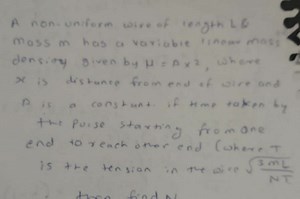 A non-uniform wire of length L &
mass m has a variable linear mass
density given by μ = A x², where
x is distance from end of wire and
A is a constant. if time taken by
the pulse starting from one
end to reach other end (where T
is the tension in the wire √(3mL/NT)
then find N